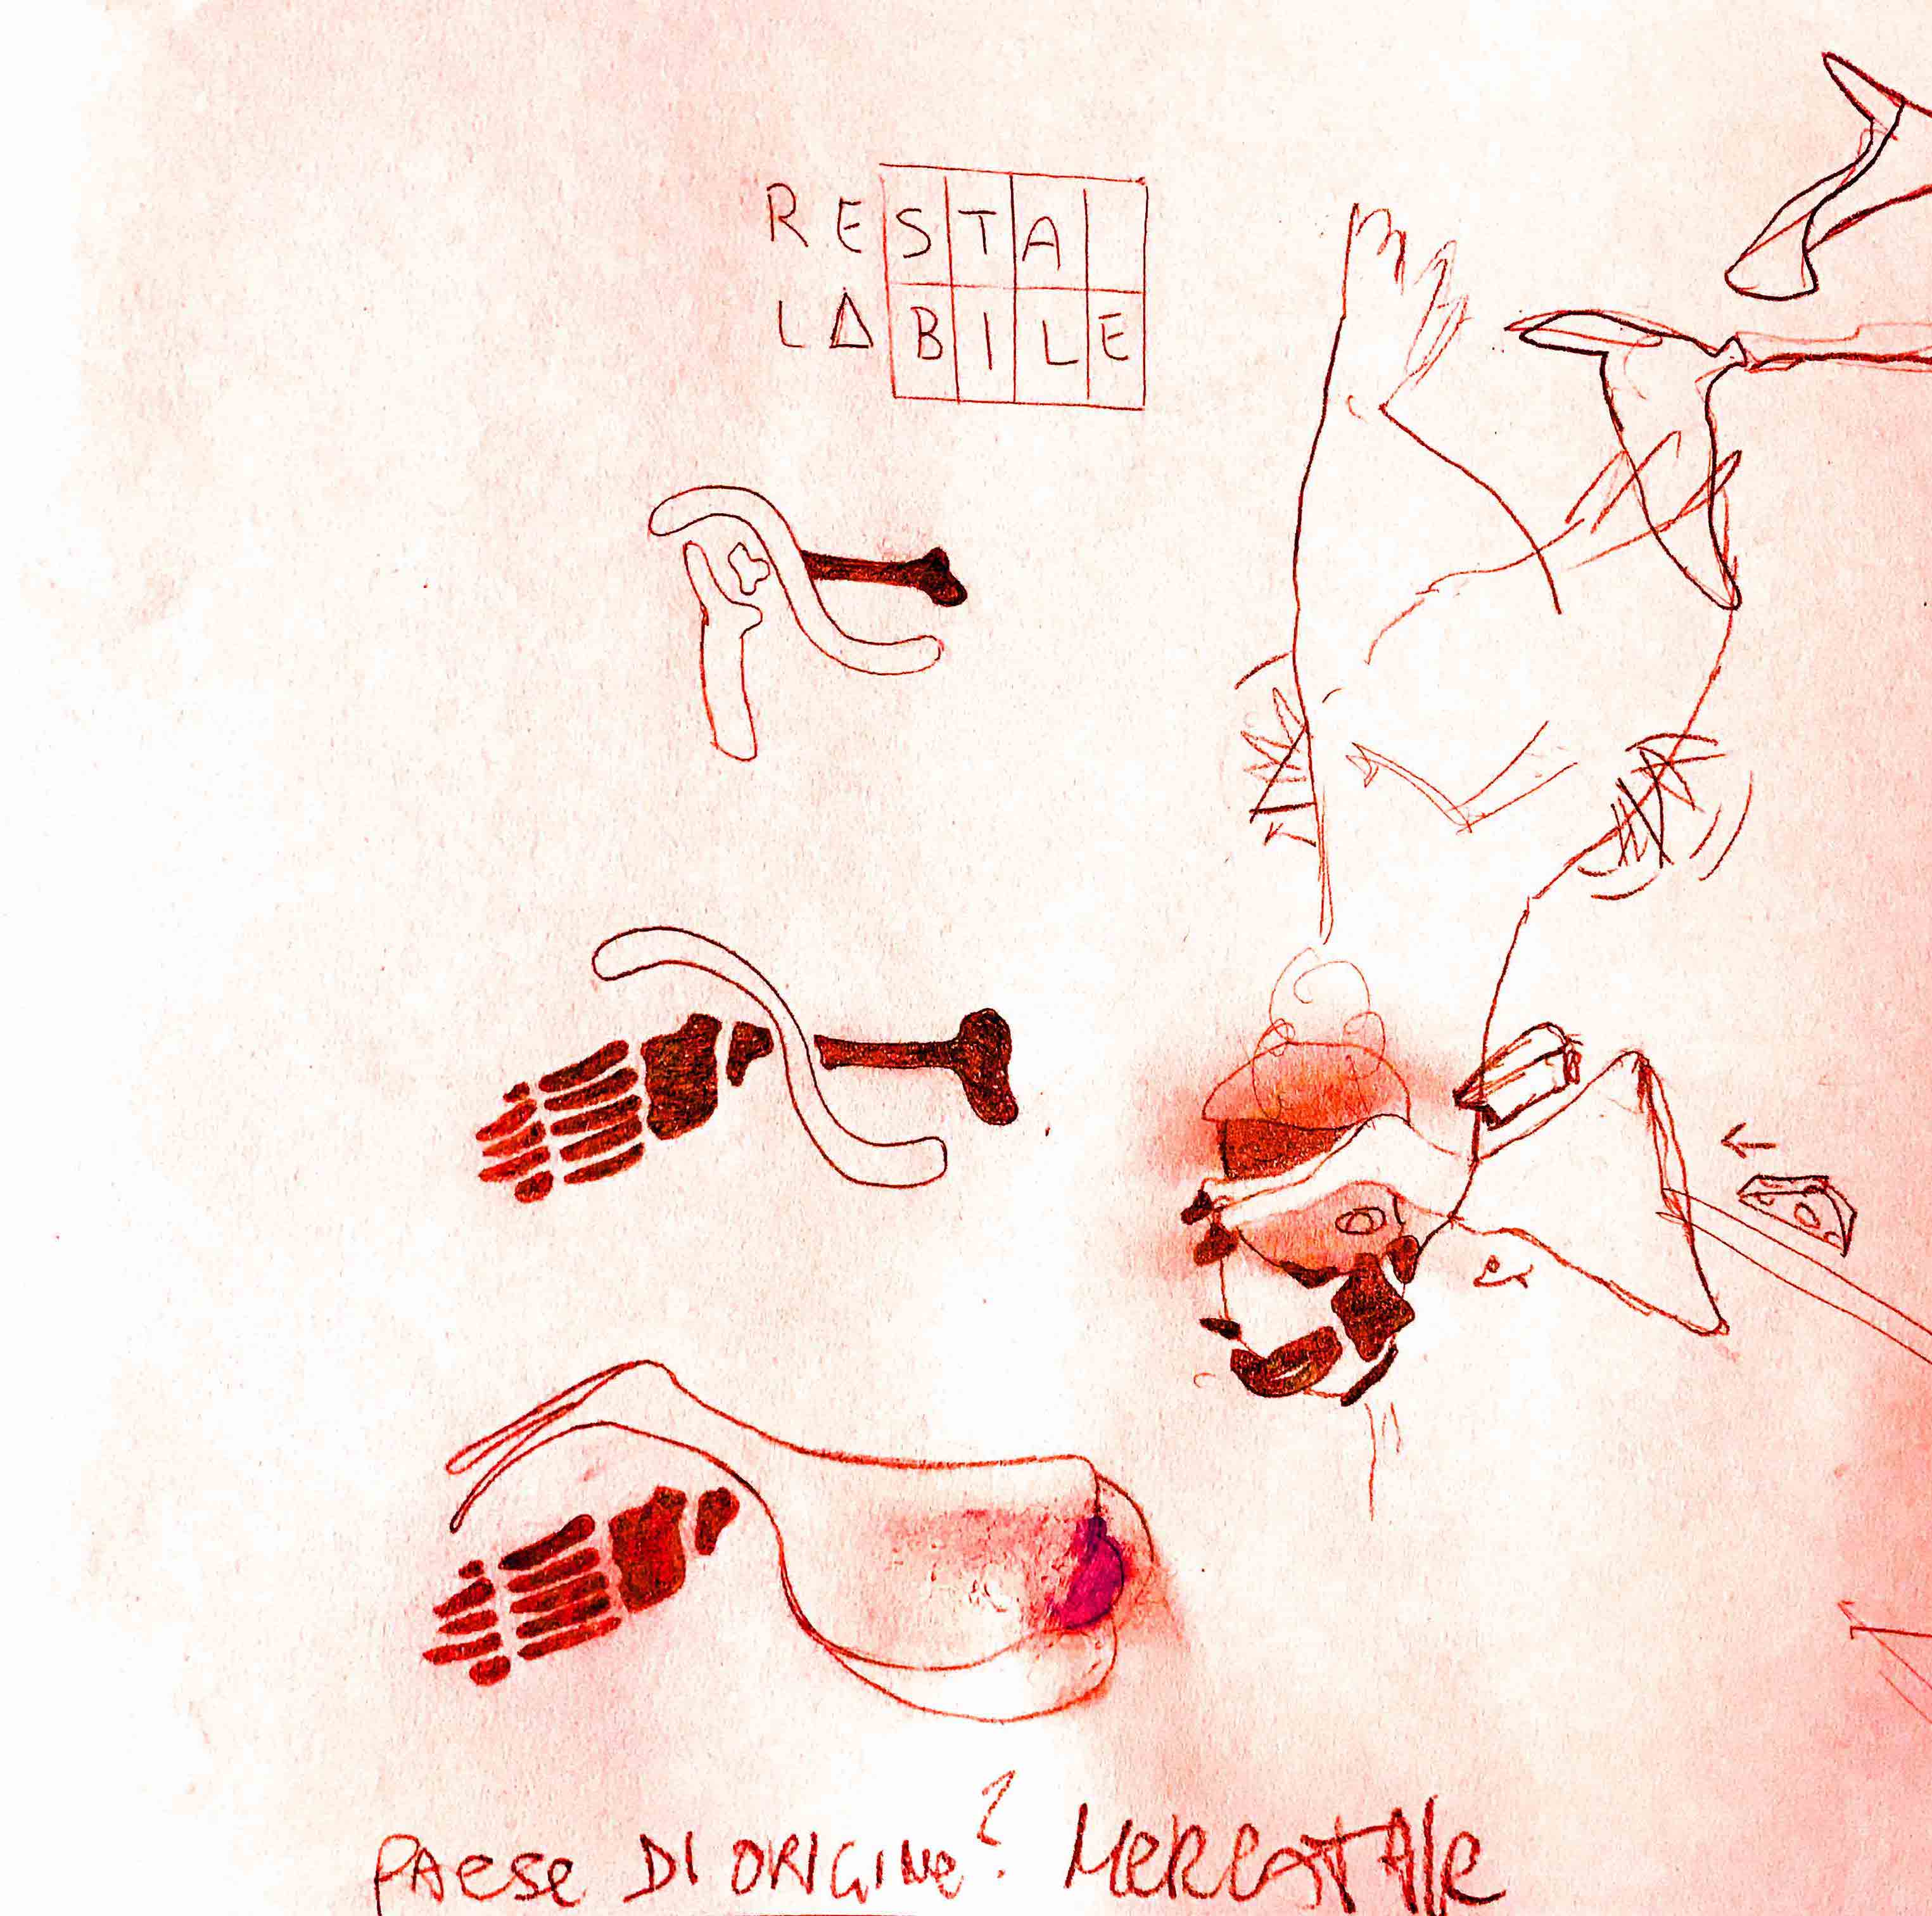 RESTA
LABILE
PAESE DI ORIGINE? MERCATALE